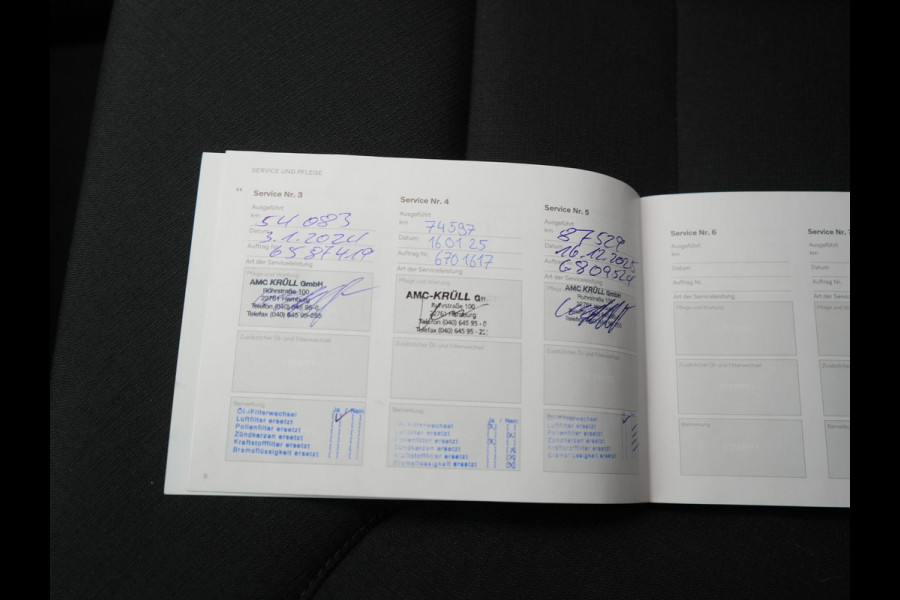 SERVICE UND PFLEGE
Service Nr. 3
Ausgeführt
km 54 083
Datum 3.1.2024
Auftrag Nr. 6587419
Art der Serviceleistung
Pflege und Wartung
AMC KRÜLL GmbH
Ruhrstraße 100
22761 Hamburg
Telefon (040) 645 95-0
Telefax (040) 645 95-255
Zusätzlicher Öl- und Filterwechsel
Bemerkung
Ja / Nein
Öl-/Filterwechsel
Luftfilter ersetzt
Pollenfilter ersetzt
Zündkerzen ersetzt
Kraftstofffilter ersetzt
Bremsflüssigkeit ersetzt
8
Service Nr. 4
Ausgeführt
km 74597
Datum 16 01 25
Auftrag Nr. 6701617
Art der Serviceleistung
Pflege und Wartung
AMC-KRÜLL G
Ruhrstraße 100
22761 Hamburg
Telefon (040) 645 95 -
Telefax (040) 645 95 - 2
Zusätzlicher Öl- und Filterwechsel
Bemerkung
Ja / Nein
Öl-/Filterwechsel
Luftfilter ersetzt
Pollenfilter ersetzt
Zündkerzen ersetzt
Kraftstofffilter ersetzt
Bremsflüssigkeit ersetzt
Service Nr. 5
Ausgeführt
km 87529
Datum 16.12.2025
6809524
Art der Serviceleistung
AMC KRÜLL GmbH
Ruhrstraße 100
Zusätzlicher Öl- und Filterwechsel
Bemerkung
Öl-/Filterwechsel
Luftfilter ersetzt
Pollenfilter ersetzt
Zündkerzen ersetzt
Kraftstofffilter ersetzt
Bremsflüssigkeit ersetzt
Service Nr. 6
Ausgeführt
km
Datum
Auftrag Nr.
Art der Serviceleistung
Pflege und Wartung
Zusätzlicher Öl- und Filterwechsel
Bemerkung
Service Nr. 7
Ausgeführt
km
Datum
Auftrag Nr.
Art der Serviceleistung
Pflege und Wartung